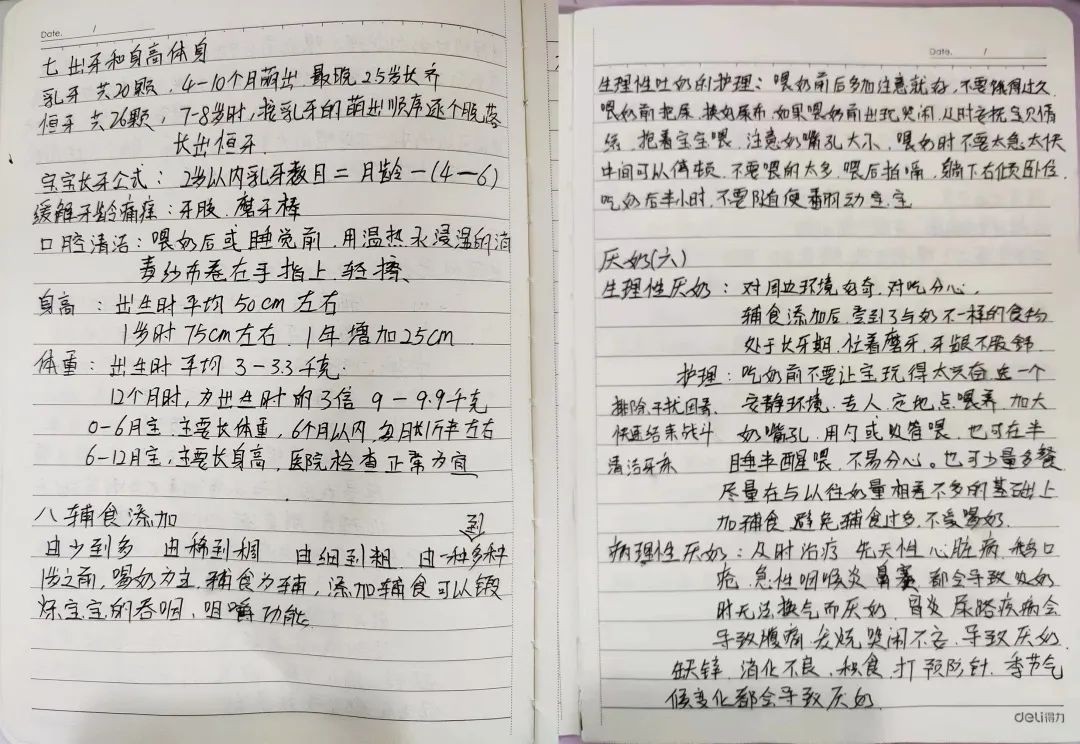 Date. /
七 出牙和身高体身
乳牙 共20颗，4-10个月萌出 最晚 2.5岁长齐
恒牙 共26颗，7-8岁时，按乳牙的萌出顺序逐个脱落
长出恒牙
宝宝长牙公式：2岁以内乳牙数目=月龄-(4-6)
缓解牙龄痛痒：牙胶、磨牙棒
口腔清洁：喂奶后或睡觉前 用温热水浸湿的消
毒纱布卷在手指上 轻擦、
身高：出生时平均50cm左右
1岁时75cm左右 1年增加25cm
体重：出生时平均 3-3.3千克
12个月时，为出生时的3倍 9-9.9千克
0-6月宝 主要长体重，6个月以内，每月长1斤半左右
6-12月宝，主要长身高，医院检查正常为宜
八 辅食添加
由少到多 由稀到稠 由细到粗 由一种到多种
1岁之前，喝奶为主，辅食为辅，添加辅食可以锻
炼宝宝的吞咽、咀嚼功能
Date. /
生理性吐奶的护理：喂奶前后多加注意就好，不要饿得过久
喂奶前把尿、换好尿布 如果喂奶前出现哭闹，及时安抚宝贝情
绪、抱着宝宝喂、注意奶嘴孔大小、喂奶时不要太急太快
中间可以停顿、不要喂的太多、喂后拍嗝，躺下右侧卧位
吃奶后半小时，不要随便翻动宝宝
厌奶(六)
生理性厌奶：对周边环境好奇，对吃分心，
辅食添加后，尝到了与奶不一样的食物
处于长牙期，忙着磨牙，牙龈不服舒
护理：吃奶前不要让宝玩得太兴奋 选一个
排除干扰因素、安静环境、专人 定地点喂养，加大
快速结束战斗 奶嘴孔，用勺或吸管喂、也可在半
清洁牙床 睡半醒喂，不易分心。也可少量多餐
尽量在与以往奶量相差不多的基础上
加辅食 避免辅食过多，不爱喝奶
病理性厌奶：及时治疗 先天性心脏病、鹅口
疮、急性咽喉炎 鼻塞 都会导致吃奶
时无法换气而厌奶 胃炎 尿路疾病会
导致腹痛 发烧 哭闹不安、导致厌奶
缺锌，消化不良，积食，打预防针，季节气
候变化都会导致厌奶
deli得力